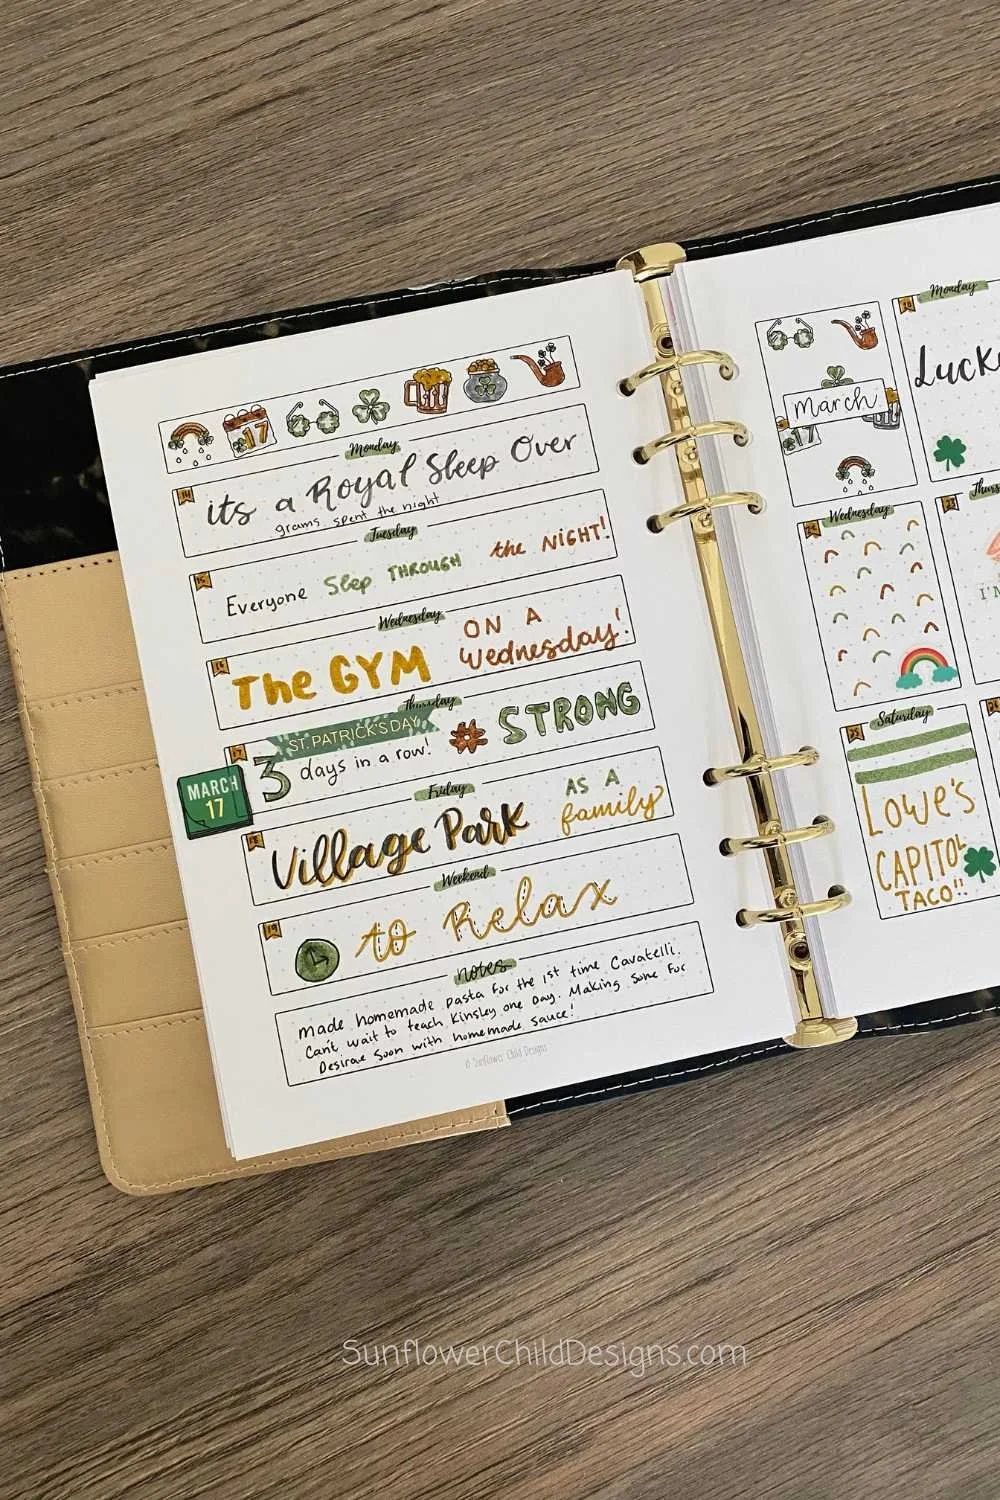 17
Monday
14
its a Royal Sleep Over
grams spent the night
Tuesday
15
Everyone Slep THROUGH the NIGHT!
Wednesday
16
The GYM
ON A
Wednesday!
Thursday
17
ST. PATRICK'S DAY
3 days in a row!
# STRONG
MARCH
17
Friday
18
Village Park
AS A
family
Weekend
19
to Relax
notes
made homemade pasta for the 1st time Cavatelli.
Can't wait to teach Kinsley one day. Making some for
Desirae soon with homemade sauce!
© Sunflower Child Designs
March
17
Monday
Wednesday
23
I'M
Saturday
25
LOWE'S
CAPITOL
TACO!!
SunflowerChildDesigns.com